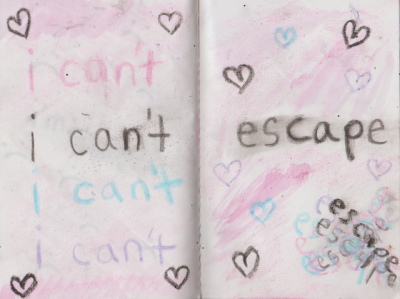 i can't
i can't
i can't
i can't
escape
escape
escape
escape